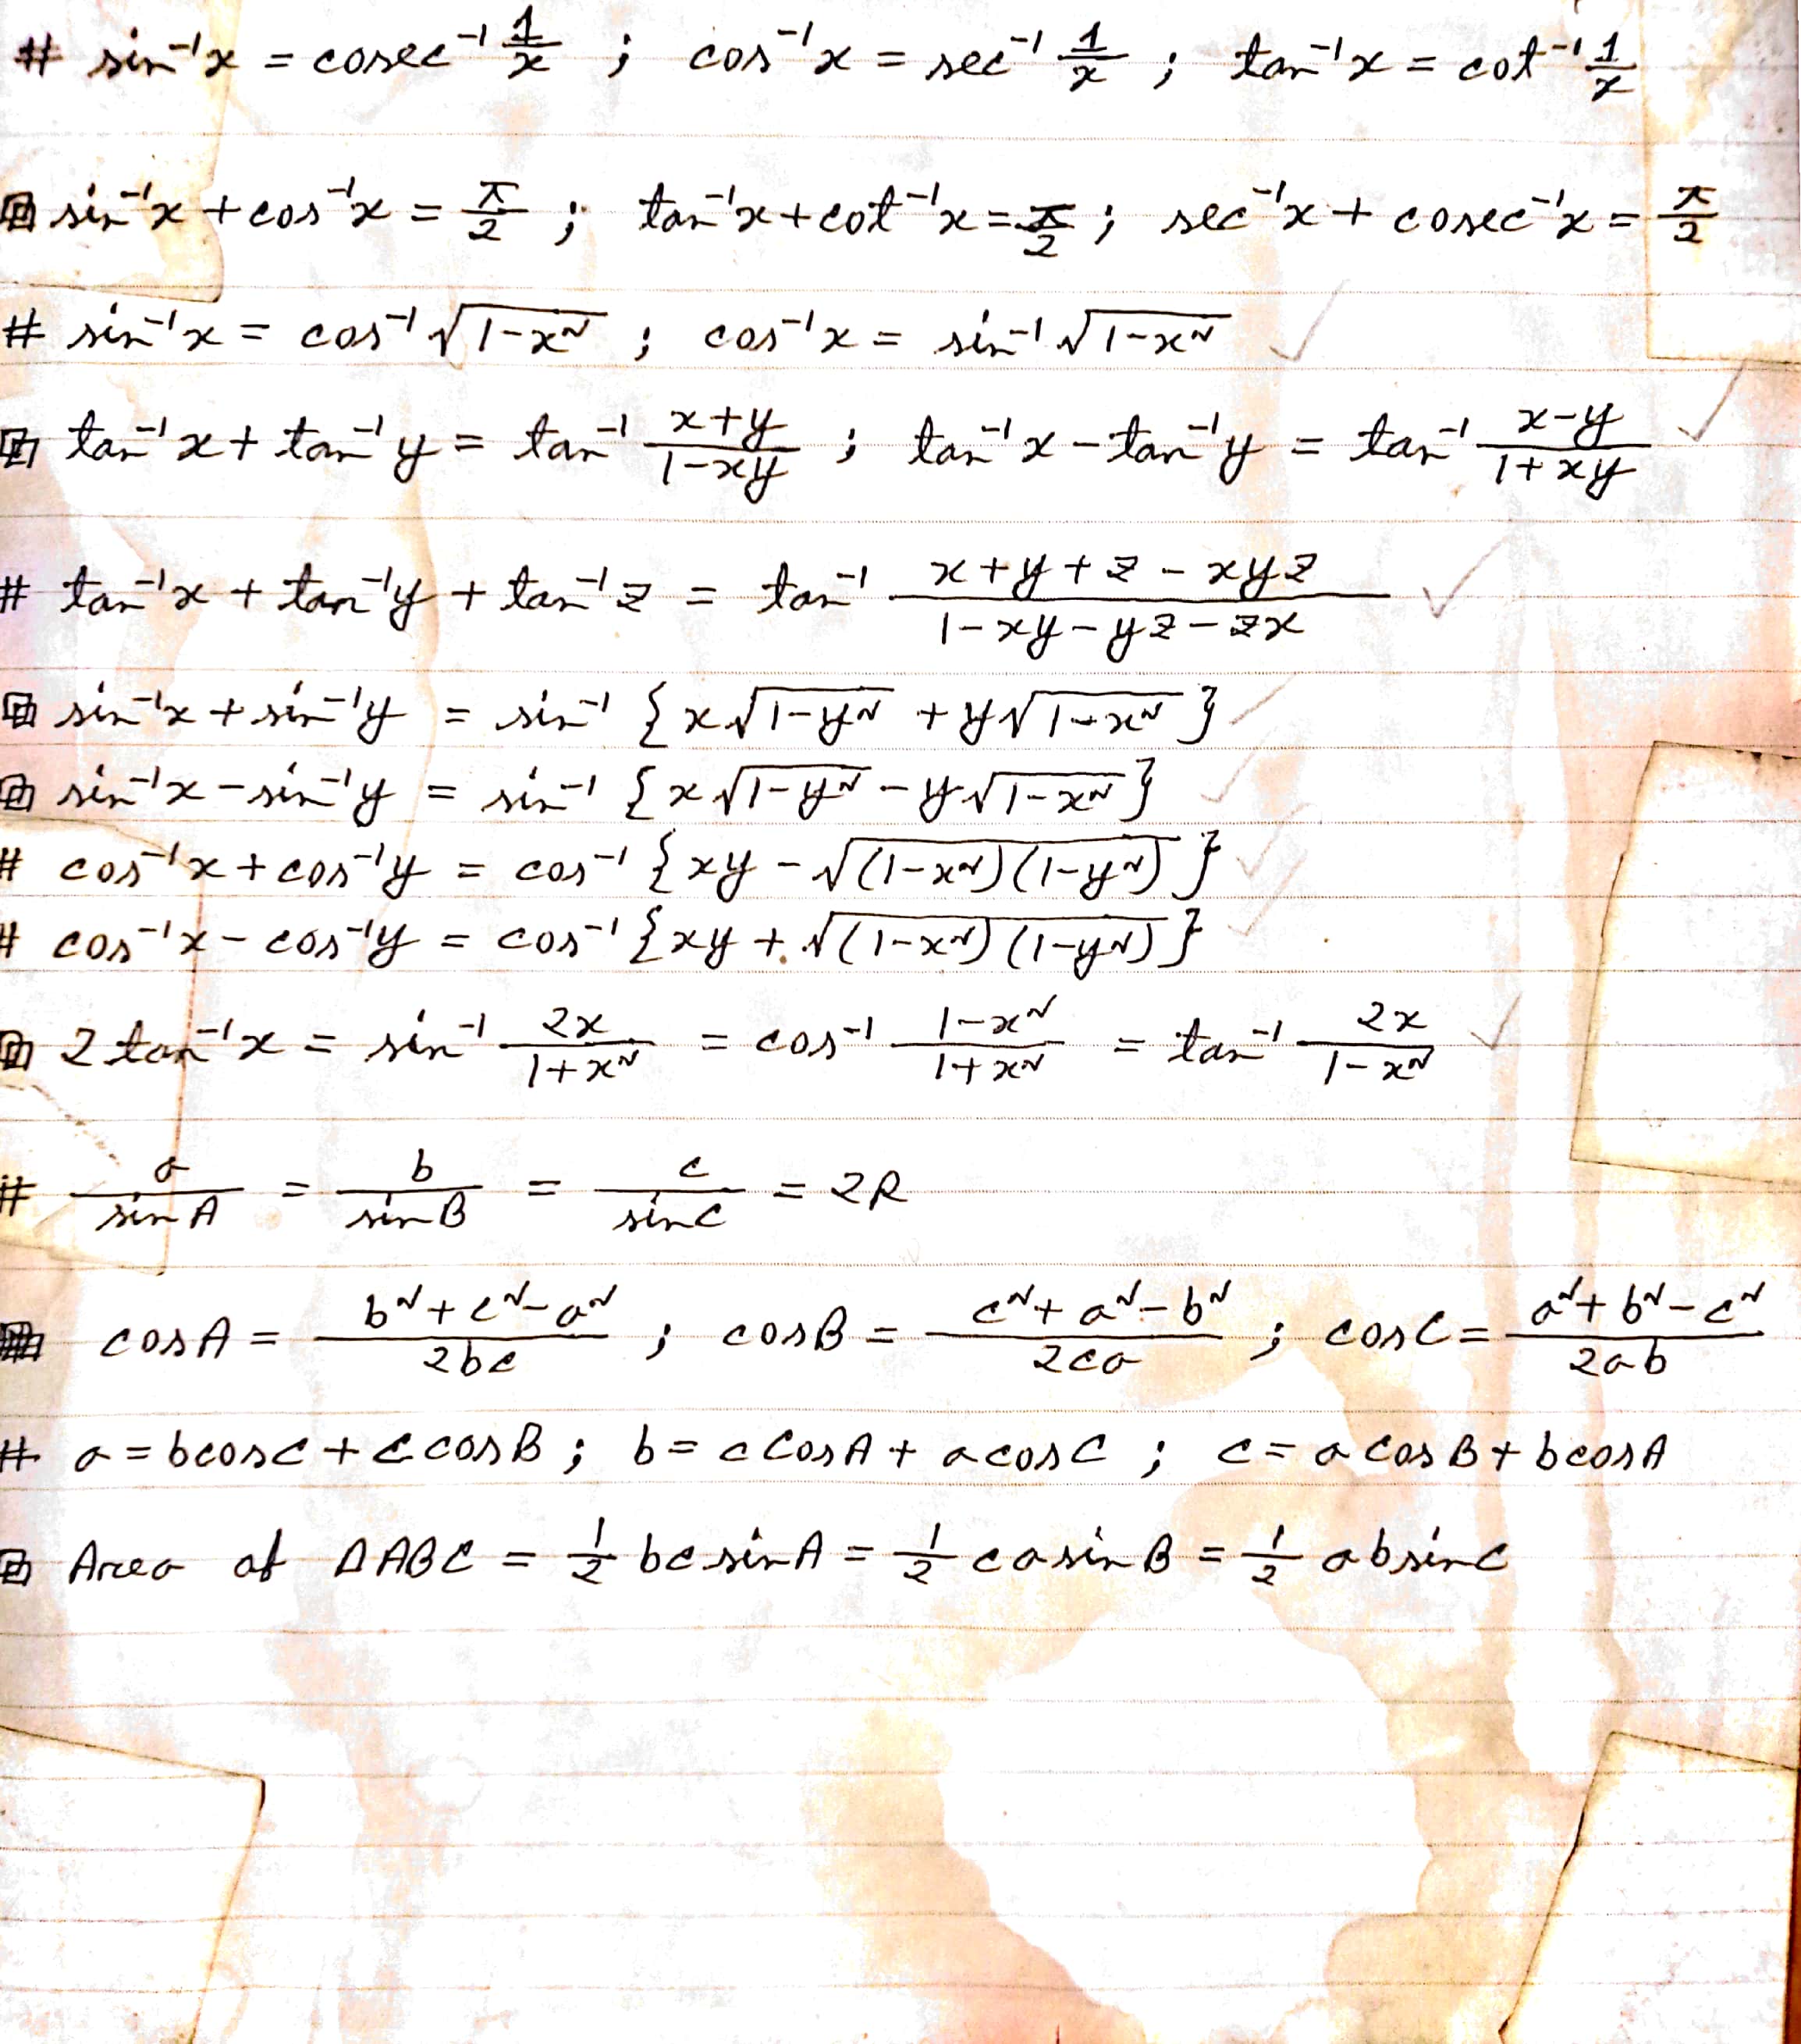 # sin⁻¹x = cosec⁻¹ 1/x ; cos⁻¹x = sec⁻¹ 1/x ; tan⁻¹x = cot⁻¹ 1/x
sin⁻¹x + cos⁻¹x = π/2 ; tan⁻¹x + cot⁻¹x = π/2 ; sec⁻¹x + cosec⁻¹x = π/2
# sin⁻¹x = cos⁻¹ √(1-x²) ; cos⁻¹x = sin⁻¹ √(1-x²) ✓
tan⁻¹x + tan⁻¹y = tan⁻¹ (x+y)/(1-xy) ; tan⁻¹x - tan⁻¹y = tan⁻¹ (x-y)/(1+xy) ✓
# tan⁻¹x + tan⁻¹y + tan⁻¹z = tan⁻¹ (x+y+z-xyz)/(1-xy-yz-zx) ✓
sin⁻¹x + sin⁻¹y = sin⁻¹ {x√(1-y²) + y√(1-x²)} ✓
sin⁻¹x - sin⁻¹y = sin⁻¹ {x√(1-y²) - y√(1-x²)} ✓
# cos⁻¹x + cos⁻¹y = cos⁻¹ {xy - √((1-x²)(1-y²))} ✓
# cos⁻¹x - cos⁻¹y = cos⁻¹ {xy + √((1-x²)(1-y²))} ✓
2 tan⁻¹x = sin⁻¹ 2x/(1+x²) = cos⁻¹ (1-x²)/(1+x²) = tan⁻¹ 2x/(1-x²) ✓
# a/sin A = b/sin B = c/sin C = 2R
cos A = (b²+c²-a²)/2bc ; cos B = (c²+a²-b²)/2ca ; cos C = (a²+b²-c²)/2ab
# a = b cos C + c cos B ; b = c Cos A + a cos C ; c = a Cos B + b cos A
Area of ΔABC = 1/2 bc sin A = 1/2 ca sin B = 1/2 ab sin C